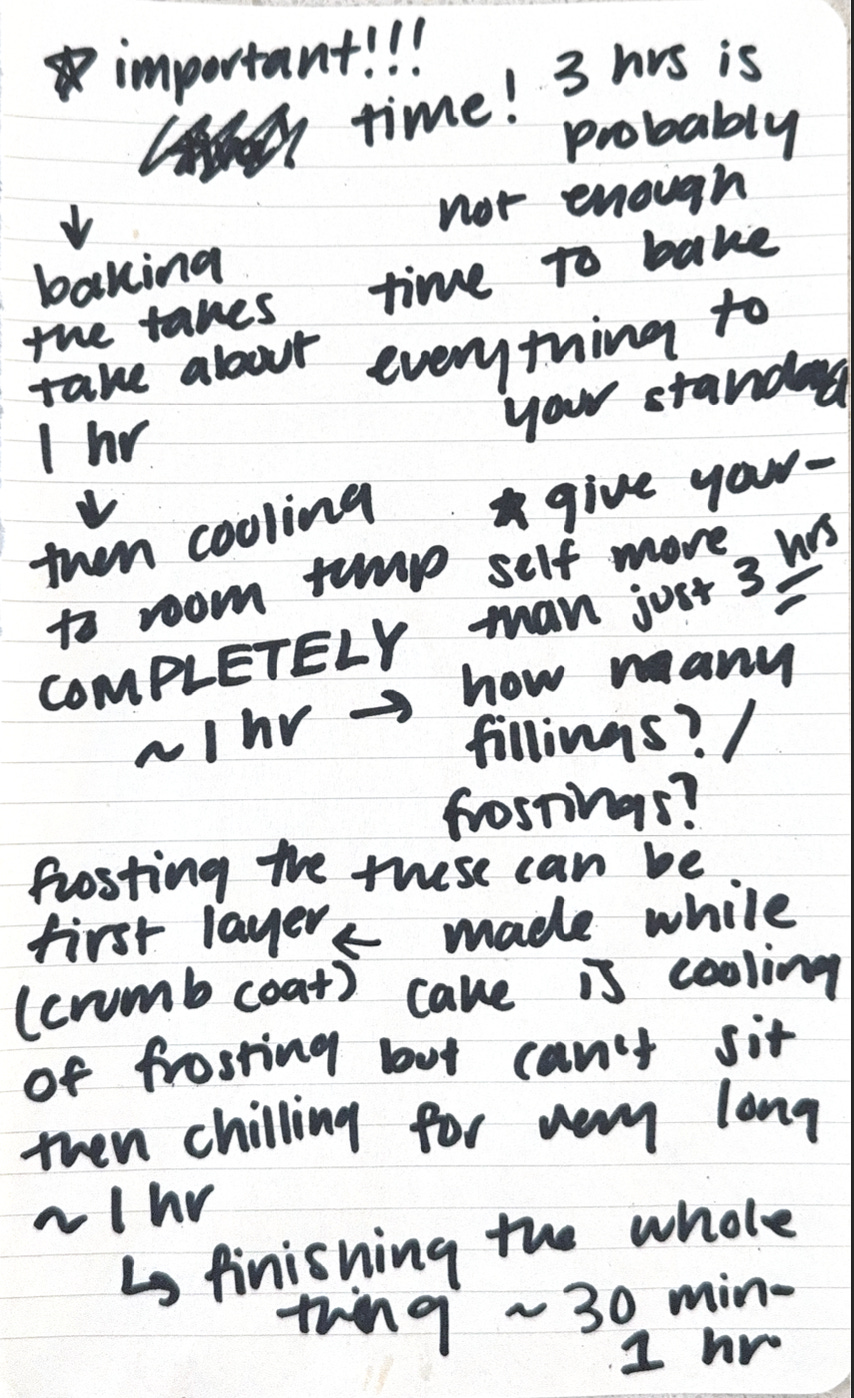 ☆ important!!!
time! 3 hrs is
probably
not enough
time to bake
everything to
your standard
↓
baking
the takes
take about
1 hr
↓
then cooling
to room temp
COMPLETELY
~ 1 hr →
★ give your-
self more
than just 3 hrs
how many
fillings? /
frostings?
these can be
made while
cake is cooling
but can't sit
for very long
frosting the
first layer ←
(crumb coat)
of frosting
then chilling
~ 1 hr
↳ finishing the whole
thing ~ 30 min-
1 hr